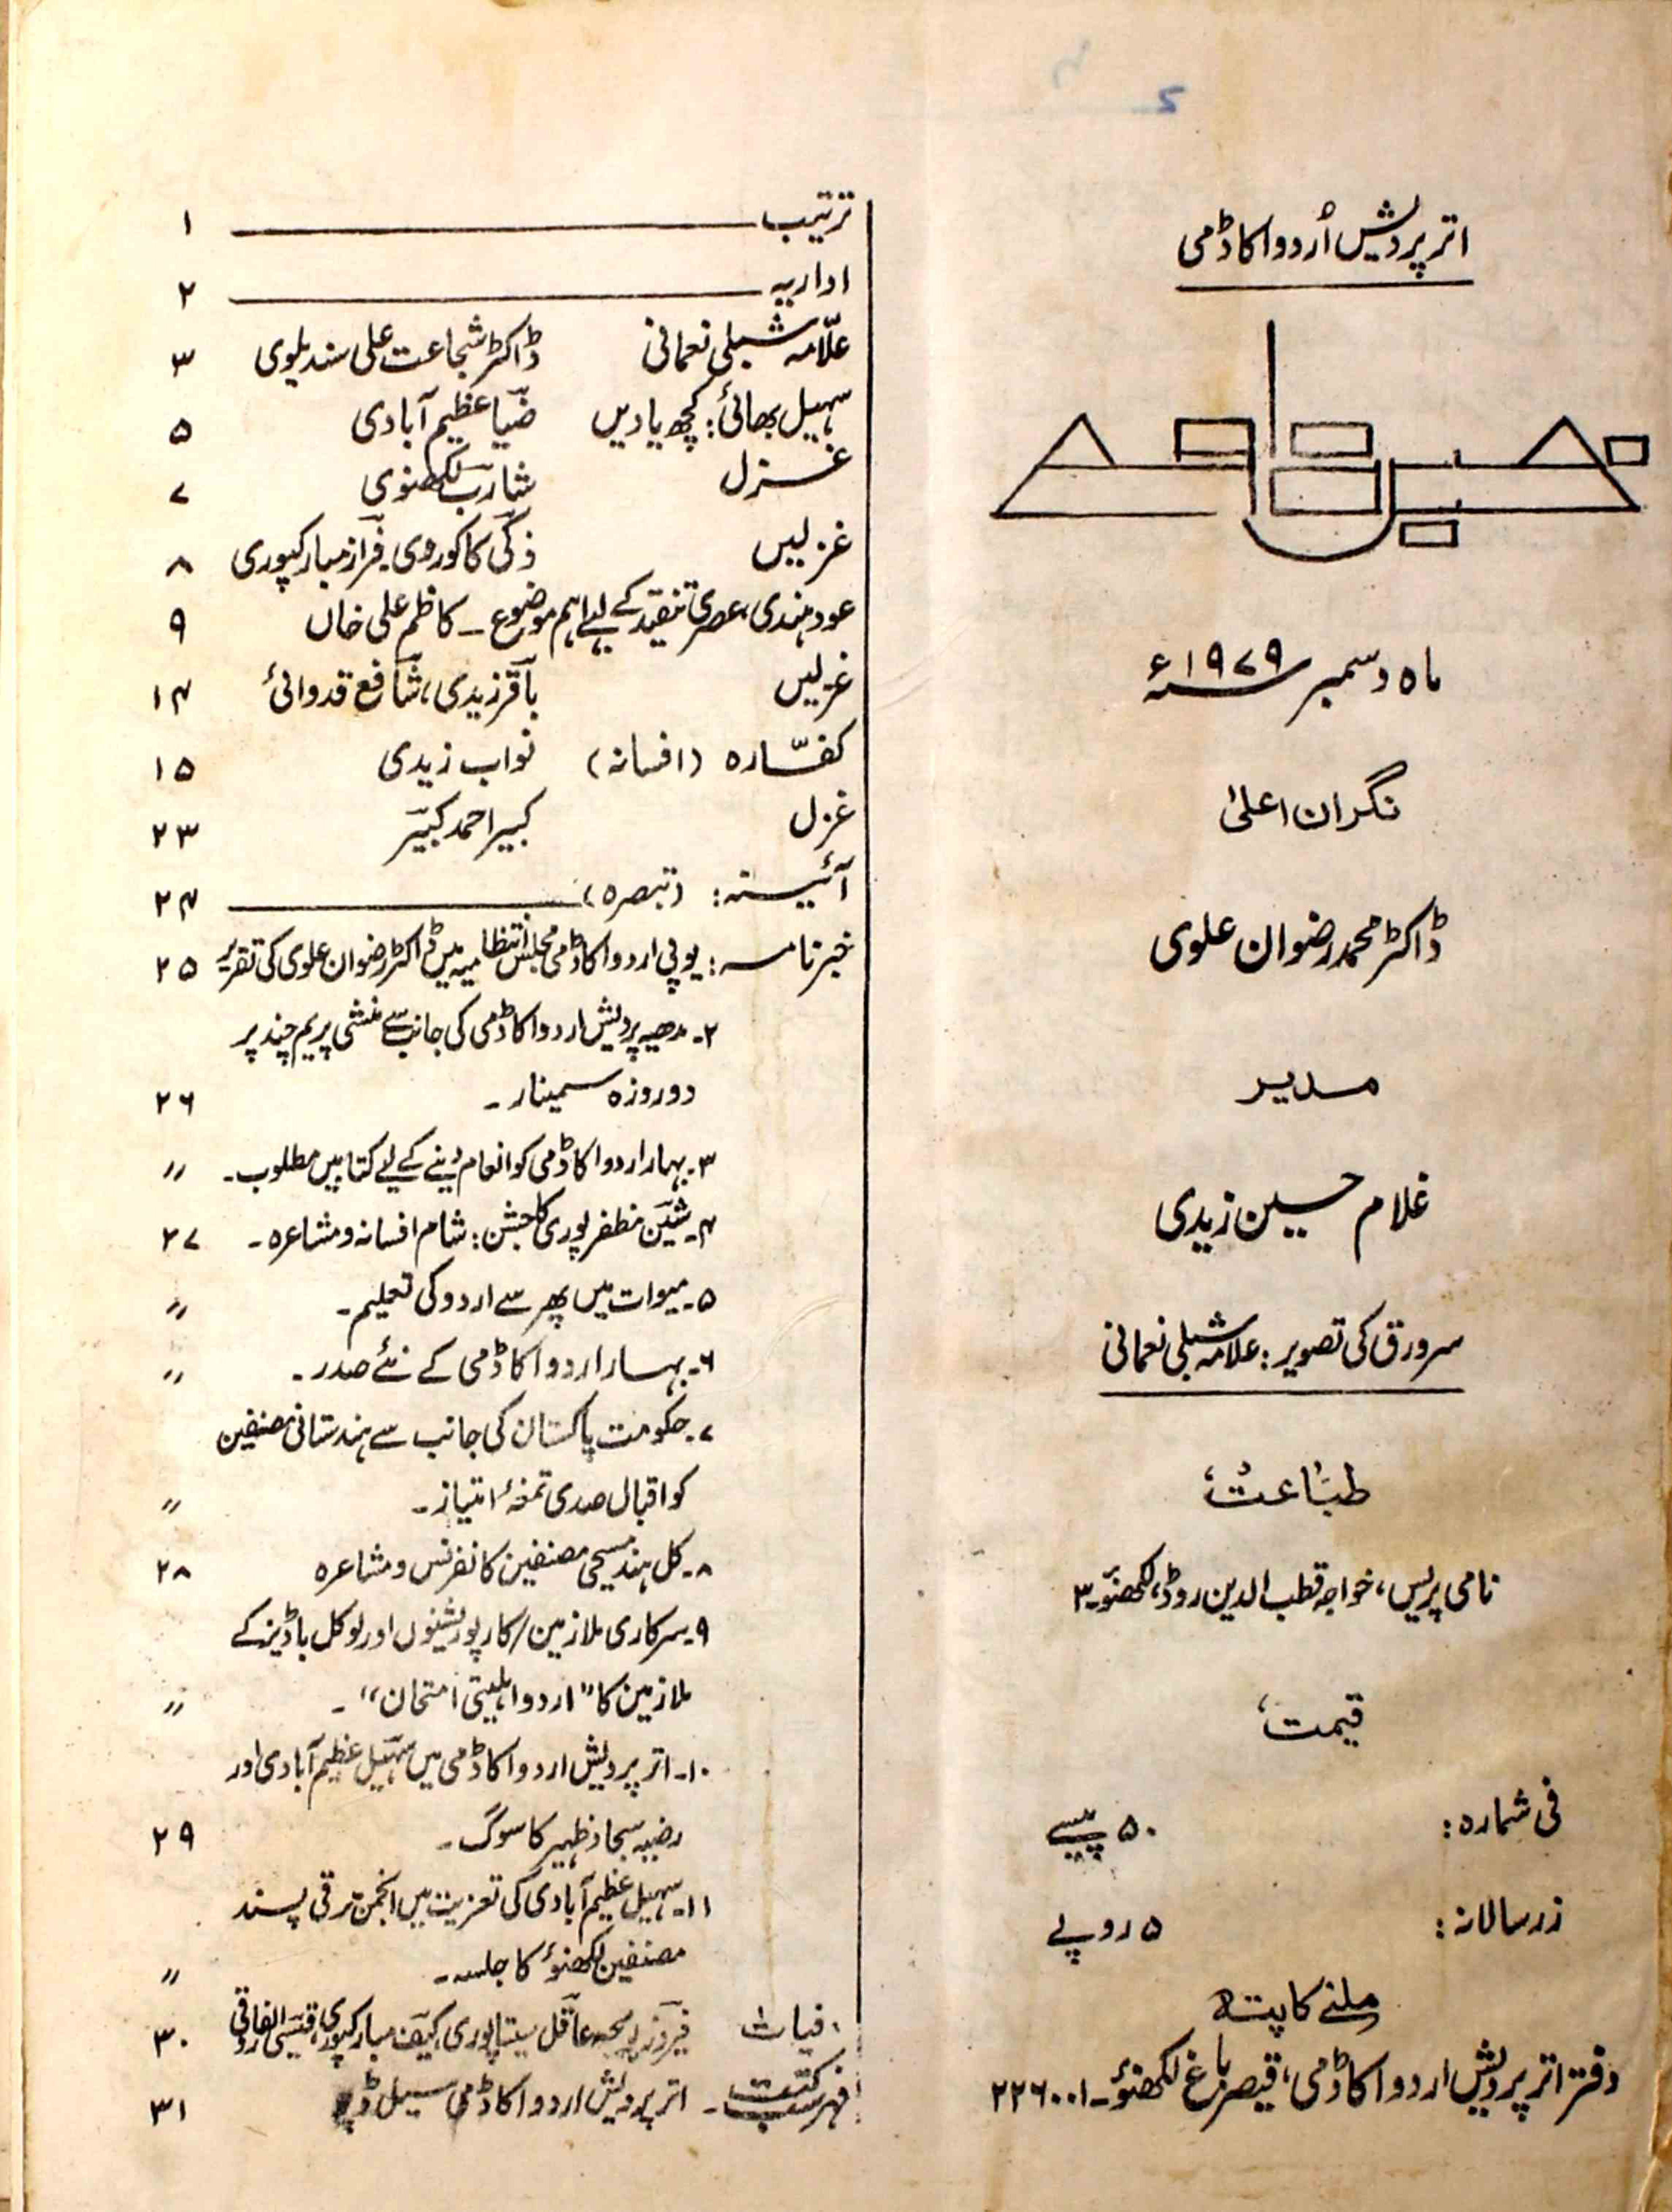 اتر پردیش اُردو اکاڈمی
خبرنامہ
ماہ دسمبر ۱۹۷۹ء
نگران اعلیٰ
ڈاکٹر محمد رضوان علوی
مدیر
غلام حسین زیدی
سرورق کی تصویر: علامہ شبلی نعمانی
طباعت،
نامی پریس، خواجہ قطب الدین روڈ، لکھنؤ۔۳
قیمت،
فی شمارہ: ۵۰ پیسے
زر سالانہ: ۵ روپے
ملنے کا پتہ
دفتر اتر پردیش اردو اکاڈمی، قیصر باغ لکھنؤ۔ ۲۲۶۰۰۱
ترتیب ۱
اداریہ ۲
علّامہ شبلی نعمانی ڈاکٹر شجاعت علی سندیلوی ۳
سہیل بھائی: کچھ یادیں ضیا عظیم آبادی ۵
غزل شارب لکھنوی ۷
غزلیں ذکی کاکوروی۔ فراز مبارکپوری ۸
عود ہندی، عصری تنقید کے لیے اہم موضوع ۔ کاظم علی خاں ۹
غزلیں باقر زیدی، شافع قدوائی ۱۴
کفّارہ (افسانہ) نواب زیدی ۱۵
غزل کبیر احمد کبیر ۲۳
آئینہ: (تبصرہ) ۲۴
خبرنامہ: یوپی اردو اکاڈمی مجلس انتظامیہ میں ڈاکٹر رضوان علوی کی تقریر ۲۵
۲۔ مدھیہ پردیش اردو اکاڈمی کی جانب سے منشی پریم چند پر
دو روزہ سمینار۔ ۲۶
۳۔ بہار اردو اکاڈمی کو انعام دینے کے لیے کتابیں مطلوب۔ ״
۴۔ شین مظفر پوری کا جشن: شام افسانہ و مشاعرہ۔ ۲۷
۵۔ میوات میں پھر سے اردو کی تعلیم۔ ״
۶۔ بہار اردو اکاڈمی کے نئے صدر۔ ״
۷۔ حکومت پاکستان کی جانب سے ہندستانی مصنفین
کو اقبال صدی تمغۂ امتیاز۔ ״
۸۔ کل ہند مسیحی مصنفین کانفرنس و مشاعرہ ۲۸
۹۔ سرکاری ملازمین/کارپوریشنوں اور لوکل باڈیز کے
ملازمین کا "اردو اہلیتی امتحان"۔ ״
۱۰۔ اتر پردیش اردو اکاڈمی میں سہیل عظیم آبادی اور
رضیہ سجاد ظہیر کا سوگ۔ ۲۹
۱۱۔ سہیل عظیم آبادی کی تعزیت میں انجمن ترقی پسند
مصنفین لکھنؤ کا جلسہ۔ ״
وفیات عاقل سیتاپوری، کیف مبارکپوری، قیسی الفاروقی ۳۰
فہرست کتب۔ اتر پردیش اردو اکاڈمی سیل ڈپو ۳۱